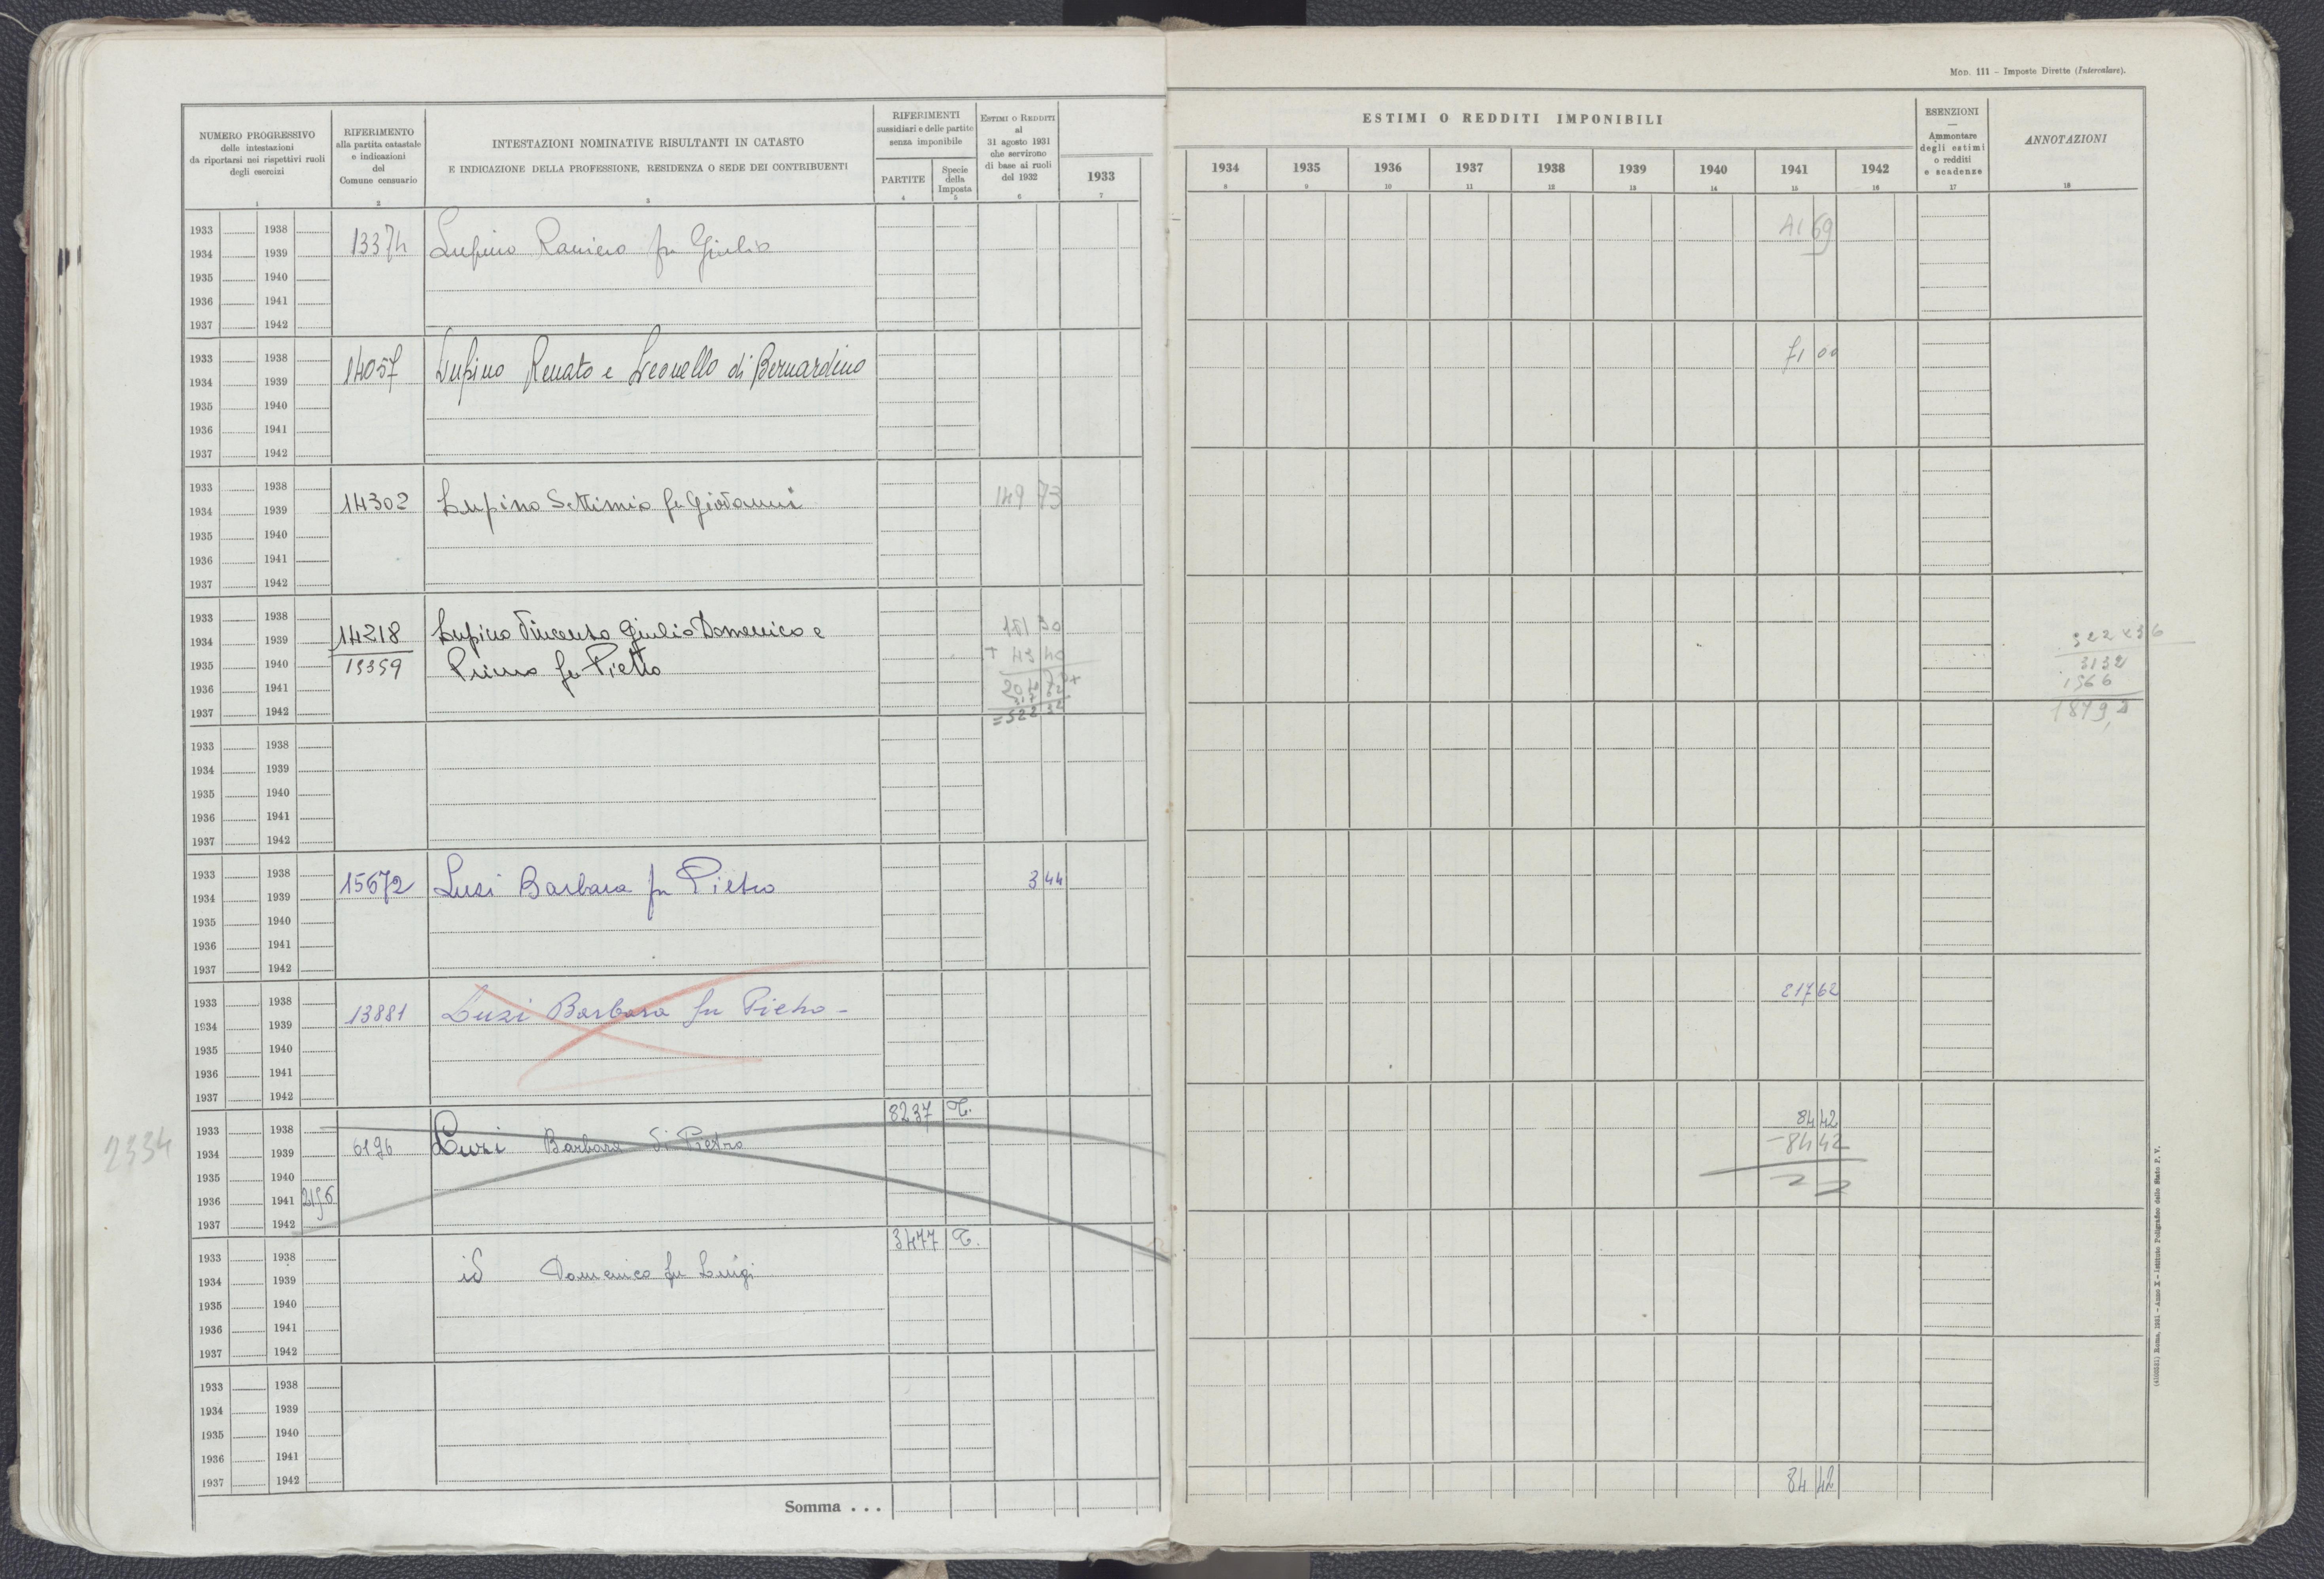 MOD. 111 – Imposte Dirette (Intercalare).
NUMERO PROGRESSIVO
delle intestazioni
da riportarsi nei rispettivi ruoli
degli esercizi
1
RIFERIMENTO
alla partita catastale
e indicazioni
del
Comune censuario
2
INTESTAZIONI NOMINATIVE RISULTANTI IN CATASTO
E INDICAZIONE DELLA PROFESSIONE, RESIDENZA O SEDE DEI CONTRIBUENTI
3
RIFERIMENTI
sussidiari e delle partite
senza imponibile
PARTITE
4
Specie
della
Imposta
5
ESTIMI O REDDITI
al
31 agosto 1931
che servirono
di base ai ruoli
del 1932
6
1933
7
ESTIMI O REDDITI IMPONIBILI
1934 1935 1936 1937 1938 1939 1940 1941 1942
8 9 10 11 12 13 14 15 16
ESENZIONI
—
Ammontare
degli estimi
o redditi
e scadenze
17
ANNOTAZIONI
18
1933 1938
1934 1939 13374 Lupino Raniero fu Giulio 41 69
1935 1940
1936 1941
1937 1942
1933 1938
1934 1939 14057 Lupino Renato e Leonello di Bernardino 71 00
1935 1940
1936 1941
1937 1942
1933 1938
1934 1939 14302 Lupino Settimio fu Giovanni 149 73
1935 1940
1936 1941
1937 1942
1933 1938
1934 1939 14218 Lupino Vincenzo Giulio Domenico e 161 30 522 x 36
1935 1940 15359 Primo fu Pietro + 43 40 3132
1936 1941 1566
1937 1942 = 522 32 1879,2
1933 1938
1934 1939
1935 1940
1936 1941
1937 1942
1933 1938
1934 1939 15672 Luzi Barbara fu Pietro 3 44
1935 1940
1936 1941
1937 1942
1933 1938
1934 1939 13881 Luzi Barbara fu Pietro - 217 62
1935 1940
1936 1941
1937 1942
8237 T.
1933 1938 84 42
2334 1934 1939 6196 Luzi Barbara di Pietro – 84 42
1935 1940
1936 1941 2196
1937 1942
3477 T.
1933 1938
1934 1939 id Domenico fu Luigi
1935 1940
1936 1941
1937 1942
1933 1938
1934 1939
1935 1940
1936 1941
1937 1942
Somma . . . 84 42